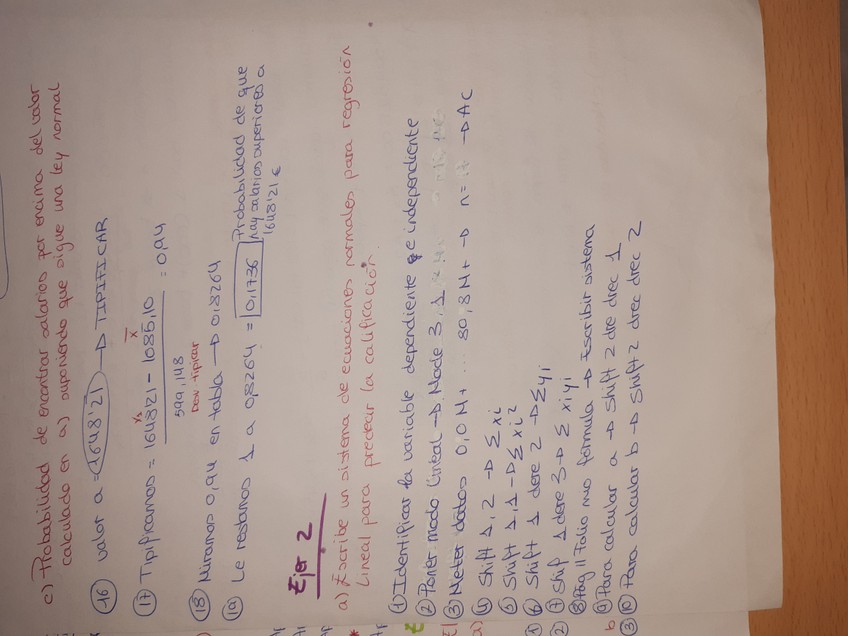 c) Probabilidad de encontrar salarios por encima del valor
calculado en a) suponiendo que sigue una ley normal
16 valor a = 1648'21 → TIPIFICAR
17 Tipificamos = 1648'21 - 1085,10 = 0,94
xs x̄
599,148
Desv. tipicar
18 Miramos 0,94 en tabla → 0,8264
19 Le restamos 1 a 0,8264 = 0,1736 Probabilidad de que
hay salarios superiores a
1648'21 €
Ejer 2
a) Escribe un sistema de ecuaciones normales para regresión
Lineal para predecir la calificación.
① Identificar la variable dependiente e independiente
② Poner modo Lineal → Mode 3, 1
③ Meter datos 0,0 M+ ... 80,8 M+ → n = 17 → AC
④ Shift 1, 2 → Σxi
⑤ Shift 1, 1 → Σxi²
⑥ Shift 1 dere 2 → Σyi
⑦ Shif 1 dere 3 → Σxiyi
⑧ Pag 11 Folio nuo formula → Escribir sistema
⑨ Para calcular a → Shift 2 dre drec 1
⑩ Para calcular b → Shift 2 drec drec 2